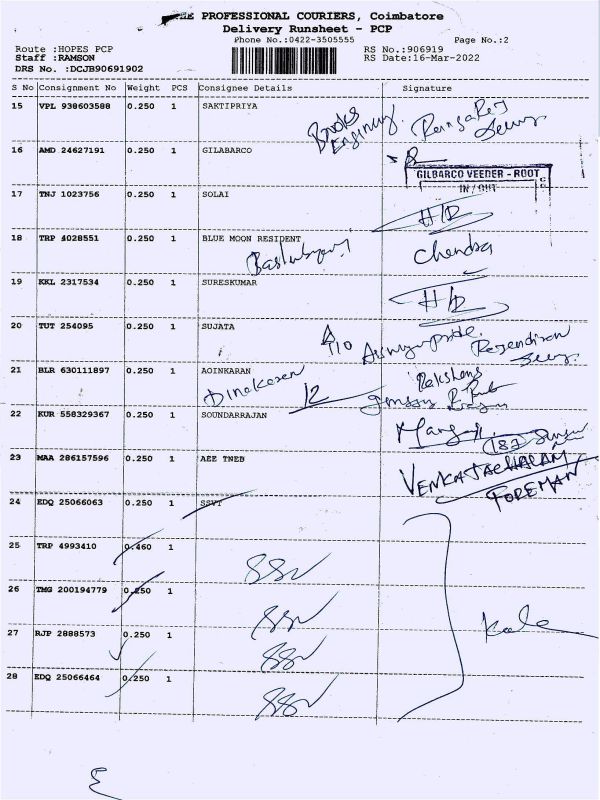 THE PROFESSIONAL COURIERS, Coimbatore
Delivery Runsheet - PCP
Phone No.:0422-3505555 Page No.:2
Route :HOPES PCP RS No.:906919
Staff :RAMSON RS Date:16-Mar-2022
DRS No. :DCJB90691902
S No Consignment No Weight PCS Consignee Details Signature
15 VPL 938603588 0.250 1 SAKTIPRIYA
16 AMD 24627191 0.250 1 GILABARCO
GILBARCO VEEDER - ROOT
IN / OUT
17 TNJ 1023756 0.250 1 SOLAI H/D
18 TRP 4028551 0.250 1 BLUE MOON RESIDENT Chendra
19 KKL 2317534 0.250 1 SURESKUMAR H/D
20 TUT 254095 0.250 1 SUJATA
21 BLR 630111897 0.250 1 AOINKARAN
Dinakaran
22 KUR 558329367 0.250 1 SOUNDARRAJAN
23 MAA 286157596 0.250 1 AEE TNEB VENKATACHALAM
FOREMAN
24 EDQ 25066063 0.250 1 SSVT
25 TRP 4993410 0.460 1
26 TMG 200194779 0.250 1
27 RJP 2888573 0.250 1
28 EDQ 25066464 0.250 1